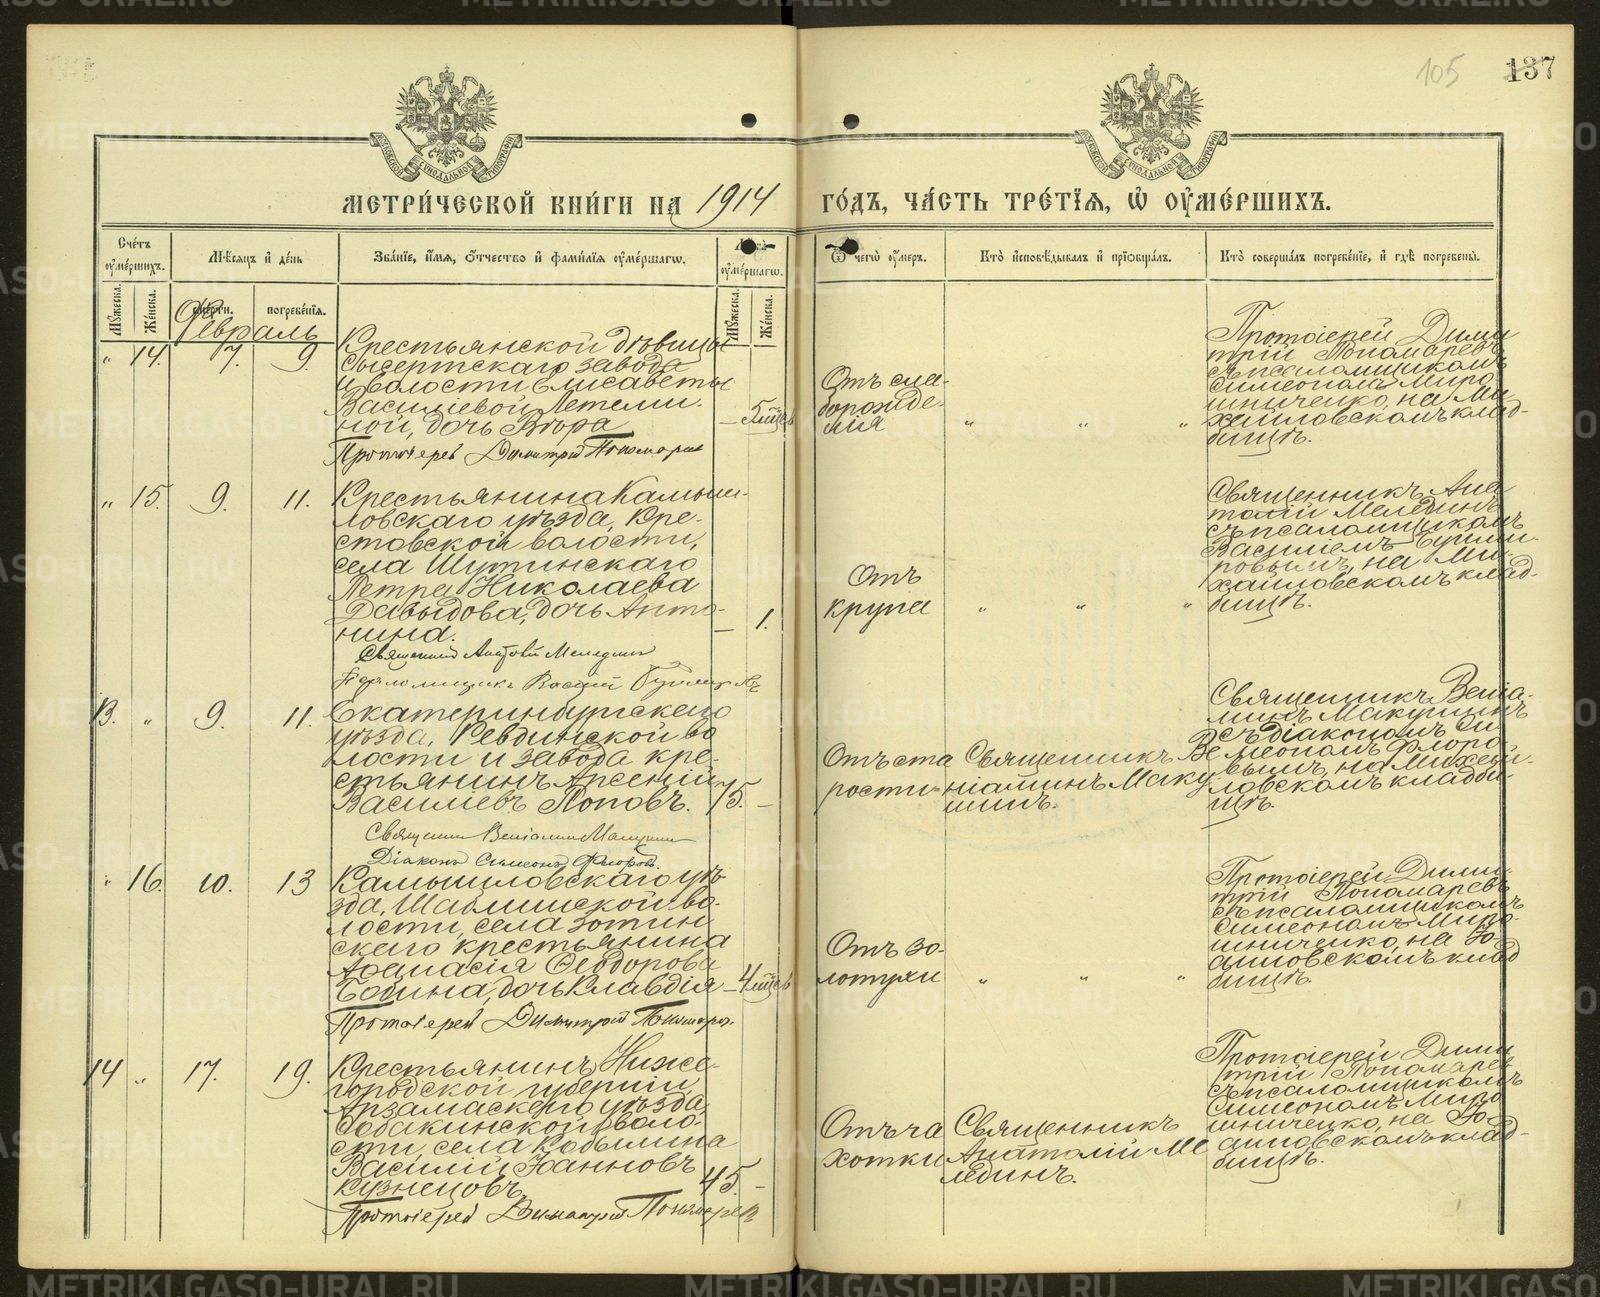 105 137
МЕТРИ́ЧЕСКОЙ КНИ́ГИ НА 1914 ГО́ДЪ, ЧА́СТЬ ТРЕ́ТІЯ, Ѡ҆ ОУ҆МЕ́РШИХЪ.
Сче́тъ оу҆ме́ршихъ.
Му́жеска.
Же́нска.
Мѣ́сяцъ и҆ де́нь
сме́рти.
погребе́нїя.
Зва́нїе, и҆́мя, ѻ҆́тчество и҆ фами́лїя оу҆ме́ршагѡ.
оу҆ме́ршагѡ.
Му́жеска.
Же́нска.
Ѿ чегѡ̀ оу҆́меръ.
Кто̀ и҆сповѣ́дывалъ и҆ прїѡбща́лъ.
Кто̀ соверша́лъ погребе́нїе, и҆ гдѣ̀ погребены̀.
Февраль
" 14. 7. 9.
Крестьянской дѣвицы
Сысертскаго завода
и волости Елисаветы
Василіевой Летеми-
ной, дочь Вѣра
— 5 мѣсев
Протоіерей Димитрій Пономарев
Отъ сла-
борожде-
нія
" " "
Протоіерей Дими
трій Пономаревъ
съ псаломщикомъ
Симеономъ Миро
шниченко, на Ми
хайловскомъ клад-
бищѣ.
" 15. 9. 11.
Крестьянина Камыш-
ловскаго уѣзда, Кре-
стовской волости,
села Шутинскаго
Петра Николаева
Давыдова, дочь Анто-
нина.
— 1.
Священник Анатолій Меледин
Псаломщикъ Василій
Отъ
крупа
" " "
Священникъ Ана
толій Мелединъ
съ псаломщикомъ
Василіемъ
ровымъ, на Ми-
хайловскомъ клад-
бищѣ.
13. " 9. 11.
Екатеринбургскаго
уѣзда, Ревдинской во
лости и завода кре-
стьянинъ Арсеній
Василіевъ Поповъ.
75. —
Священник Веніамин Макушин
Діаконъ Симеонъ Флоровъ.
Отъ ста
рости
Священникъ Ве
ніаминъ Маку
шинъ.
Священникъ Веніа-
минъ Макушинъ
съ діакономъ Си
меономъ Флоро-
вымъ, на Михай-
ловскомъ кладби-
щѣ.
" 16. 10. 13
Камышловскаго уѣ-
зда, Шаблишской во-
лости, села Зотин
скаго крестьянина
Аѳанасія Ѳеодорова
Бабина, дочь Клавдія
— 4 мѣсев
Протоіерей Димитрій Пономарев.
Отъ зо-
лотухи
" " "
Протоіерей Дими
трій Пономаревъ
съ псаломщикомъ
Симеономъ Миро-
шниченко, на Іо-
анновскомъ клад
бищѣ.
14 " 17. 19.
Крестьянинъ Ниже-
городской губерніи,
Арзамаскаго уѣзда,
Собакинской воло-
сти, села Кобылина
Василій Іоанновъ
Кузнецовъ.
45. —
Протоіерей Димитрій Пономарев
Отъ ча
хотки
Священникъ
Анатолій Ме
лединъ.
Протоіерей Дими
трій Пономарев
съ псаломщикомъ
Симеономъ Миро
шниченко, на Іо-
анновскомъ клад-
бищѣ.
METRIKI.GASO-URAL.RU